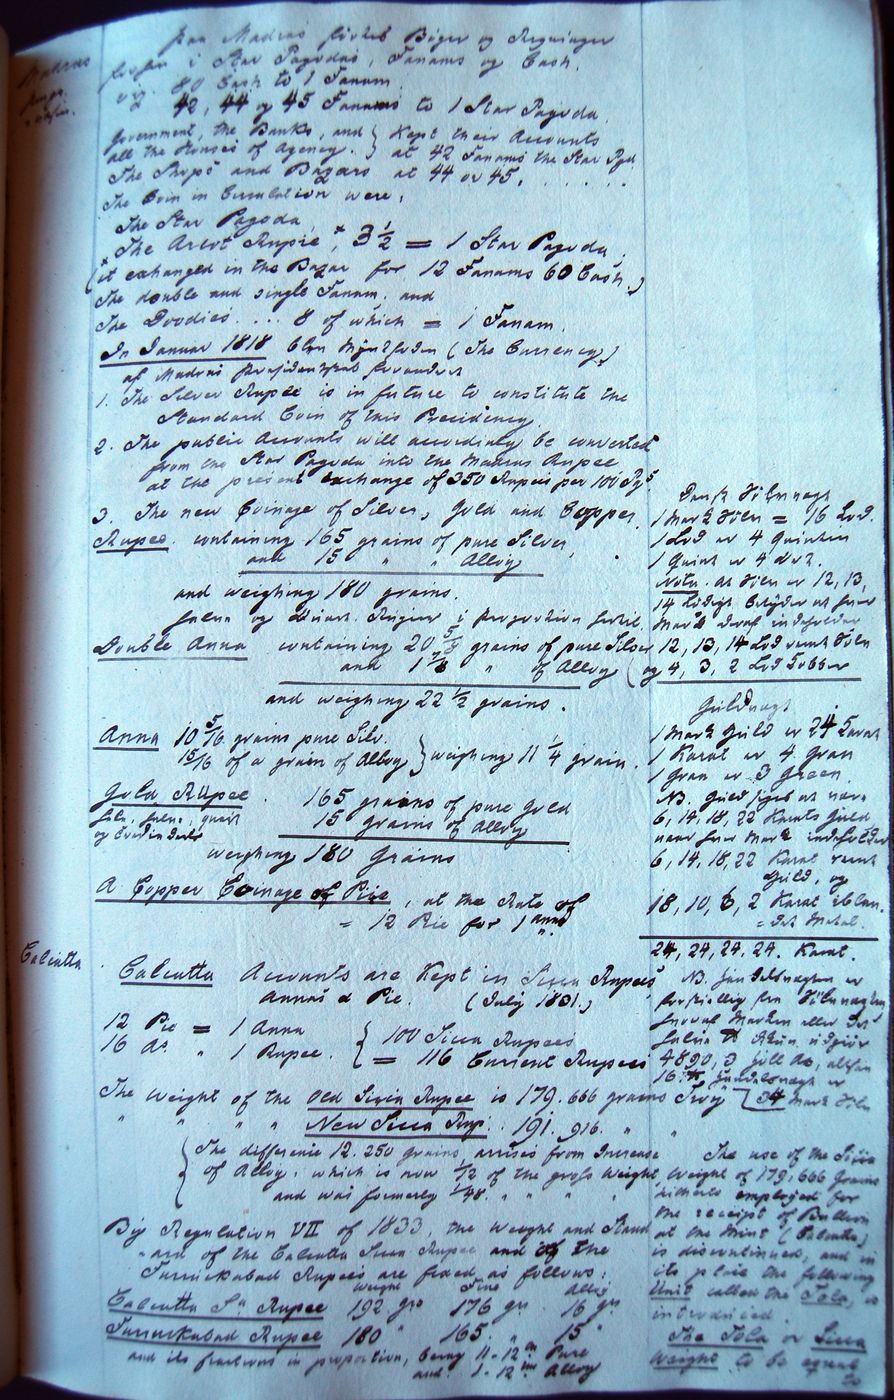 Madras
paa Madras førtes Bøger og Regninger
forhen i Star Pagodas, Fanams og Cash.
og 80 Cash to 1 Fanam
42, 44 og 45 Fanams to 1 Star Pagoda.
Government, the Banks, and } Kept their Accounts
all the Houses of Agency. } at 42 Fanams the Star Pgd
The Shops and Bazars at 44 or 45. . . . . . .
The Coin in Circulation were,
The Star Pagoda,
* The Arcot Rupie, * 3 1/2 = 1 Star Pagoda,
(it exchanged in the Bazar for 12 Fanams 60 Cash.)
The double and single Fanam. and
The Doodies .... 8 of which = 1 Fanam.
In Januar 1818 blev Myntfoden (The Currency,)
af Madras Præsidentskab forandret
1. The Silver Rupee is in future to constitute the
Standard Coin of this Presidency.
2. The public Accounts will accordingly be converted
from the Star Pagoda into the Madras Rupee
at the present exchange of 350 Rupees per 100 Pgs.
3. The new Coinage of Silver, Gold and Copper.
Rupee containing 165 grains of pure Silver,
and 15 " " Alloy
and weighing 180 grains.
halve og Quart. Rupier i Proportion hertil.
Double Anna containing 20 5/8 grains of pure Silver
and 1 7/8 " of Alloy
and weighing 22 1/2 grains.
Anna 10 5/16 grains pure Silv.
15/16 of a grain of Alloy } weighing 11 1/4 grain.
Gold Rupee. 165 grains of pure Gold
15 grains of Alloy
weighing 180 Grains
A Copper Coinage of Pice, at the Rate of
= 12 Pie for 1 anna
Calcutta
Calcutta Accounts are Kept in Sicca Rupees
Annas & Pie. (July 1831.)
12 Pie = 1 Anna { 100 Sicca Rupees
16 As. " 1 Rupee. { = 116 Current Rupees
The Weight of the Old Sicca Rupee is 179.666 grains Troy
" " " " New Sicca Rup. . 191.916. " "
The difference 12.250 grains, arises from Increase
of Alloy. which is now 1/12 of the gross Weight,
and was formerly 1/48. " " " "
By Regulation VII of 1833, the Weight and Stand
-ard of the Calcutta Sicca Rupee and of the
Furruckabad Rupees are fixed as follows:
Weight Fine Alloy
Calcutta Sa Rupee 192 grs 176 gr. 16 grs
Furruckabad Rupee 180 " 165. " 15 "
and its fractions in proportion, being 11-12th Pure
and. 1-12th Alloy
Dansk Sølvvægt
1 Mark Sølv = 16 Lod.
1 Lod er 4 Quintin
1 Quint er 4 Ort.
Nota. at Sølv er 12, 13,
14 Lødigt betyder at hver
Mark deraf indeholder
12, 13, 14 Lod reent Sølv
(og 4, 3, 2 Lod Kobber
Guldvægt
1 Mark Guld er 24 Karat
1 Karat er 4 Gran
1 Gran er 3 Green.
NB. Guld siges at være
6, 14, 18, 22 Karats Guld
naar hver Mark indeholder
6, 14, 18, 22 Karat reent
Guld, og
18, 10, 6, 2 Karat iblan-
=det Metal.
24, 24, 24, 24. Karat.
NB. Handelsvægten er
forskiellig fra Sølvvægten
4890,3 holl As, altsaa
16 Handelsvægt er
34 Mark Sølv
The use of the Sicca
Weight of 179,666 Grains
hitherto employed for
the receipt of Bullion
at the Mint (Calcutta)
is discontinued, and in
its place the following
Unit called the Tola, is
introduced.
The Tola or Sicca
Weight to be equal
to